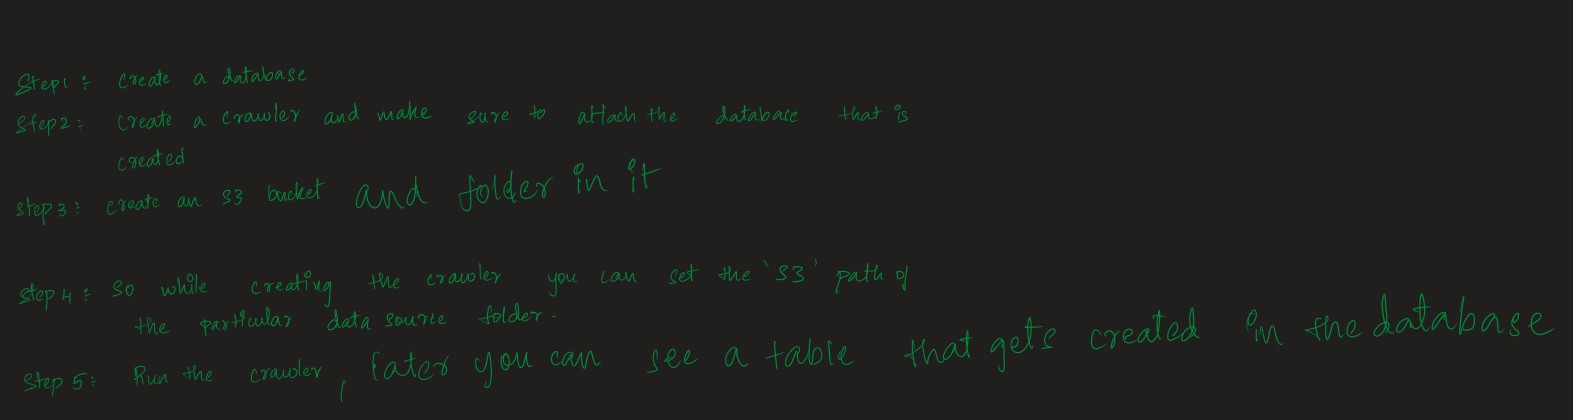 Step1 : Create a database
Step2: Create a crawler and make sure to attach the database that is
created
Step 3: Create an S3 bucket and folder in it
Step 4: So while creating the crawler you can set the 'S3' path of
the particular data source folder.
Step 5: Run the crawler, later you can see a table that gets created in the database